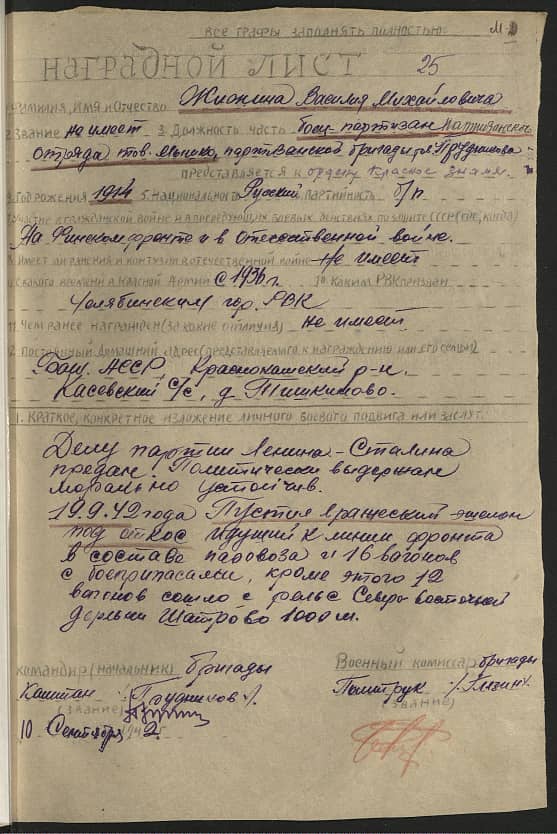 ВСЕ ГРАФЫ ЗАПОЛНЯТЬ ПОЛНОСТЬЮ.
НАГРАДНОЙ ЛИСТ
25
Фамилия, имя и отчество Жионкина Василия Михайловича
2. Звание не имеет 3. Должность часть боец-партизан партизанского
отряда тов. партизанской бригады т. Прудникова
представляется к ордену Красное знамя.
3. Год рождения 1914 5. Национальность Русский партийность б/п
На Финском фронте и в Отечественной войне.
8. Имеет ли ранения и контузии в отечественной войне не имеет
с какого времени в Красной Армии с 1936 г. 10 Каким РВК призван
Челябинским гор. РВК
11. Чем ранее награжден (за какие отличия) не имеет.
2. Постоянный домашний адрес (представляемого к награждению или его семьи)
Баш. АССР, Краснокамский р-н.
Касевский с/с, д. Тишкиново.
1. Краткое, конкретное изложение личного боевого подвига или заслуг.
Делу партии Ленина-Сталина
предан. Политически выдержан
морально устойчив.
19.9.42 года Пустил вражеский эшелон
под откос идущий к линии фронта
в составе паровоза и 16 вагонов
с боеприпасами, кроме этого 12
вагонов сошло с рельс Северо восточной
дерьвни Шатрово 1000 м.
Командир (начальник) бригады
Капитан /Прудников/.
(звание)
10 Сентября 1942 г.
Военный комиссар бригады
Политрук
(звание)